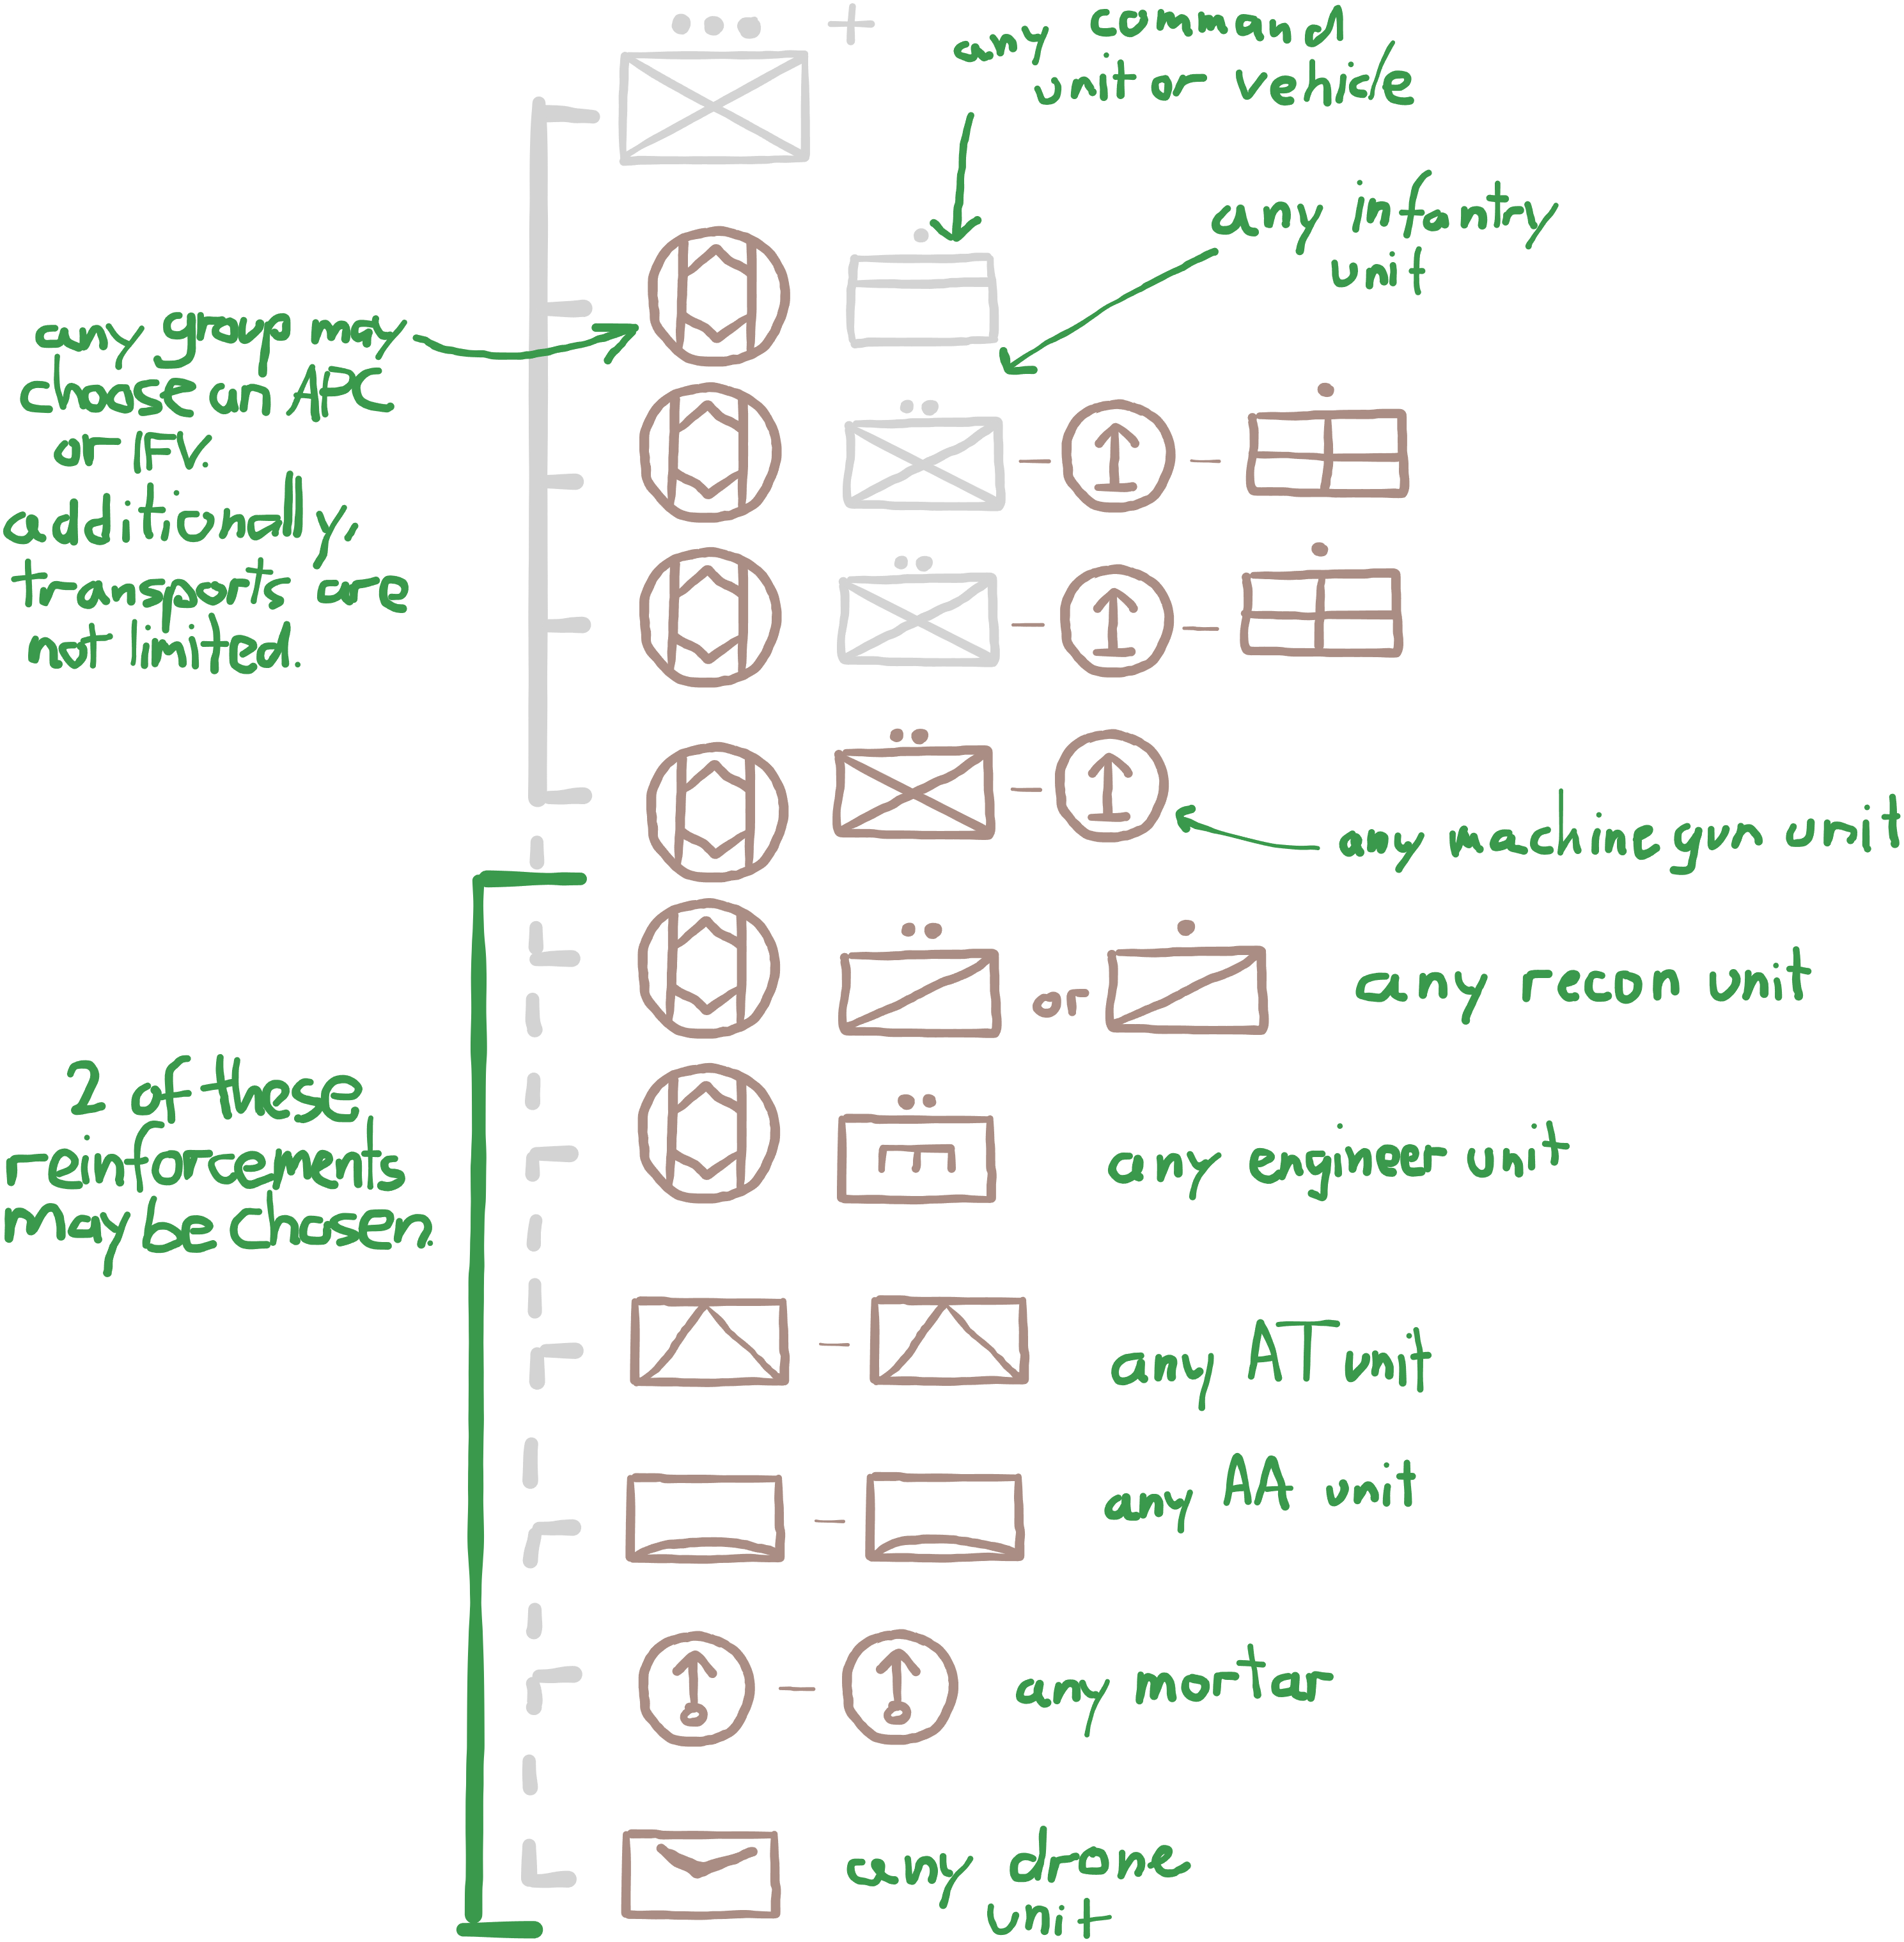 any command
unit or vehicle
any infantry
unit
any group may
choose an APC
or IFV.
additionally,
transports are
not limited.
any machinegun unit
or
any recon unit
2 of these
reinforcements
may be chosen.
any engineer unit
any AT unit
any AA unit
any mortar
any drone
unit